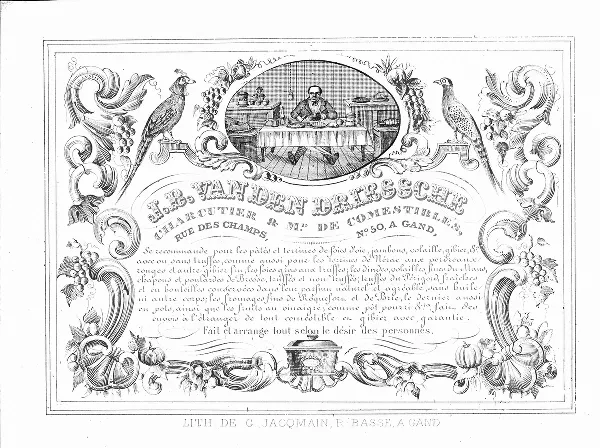 J.B. VAN DEN DRIESSCHE
CHARCUTIER & Md. DE COMESTIBLES,
RUE DES CHAMPS, No. 50, A GAND,
Se recommande pour les pâtés et terrines de foies d'oie, jambons, volaille, gibier, &a.
avec ou sans truffes, comme aussi pour les terrines de Nérac aux perdreaux
rouges et autre gibier fin, les foies gras aux truffes; les dindes, volailles fines du Mans,
chapons et poulardes de Bresse, truffés et non truffés; truffes du Périgord fraîches
et en bouteilles conservées dans leur parfum naturel et agréable, sans huile
ni autre corps; les fromages fins de Roquefort et de Brie, le dernier aussi
en pots, ainsi que les fruits au vinaigre; comme pot pourri &a. fait des
envois à l'étranger de tout comestible en gibier avec garantie.
Fait et arrange tout selon le désir des personnes.
LITH DE G. JACQMAIN, R. BASSE, A GAND